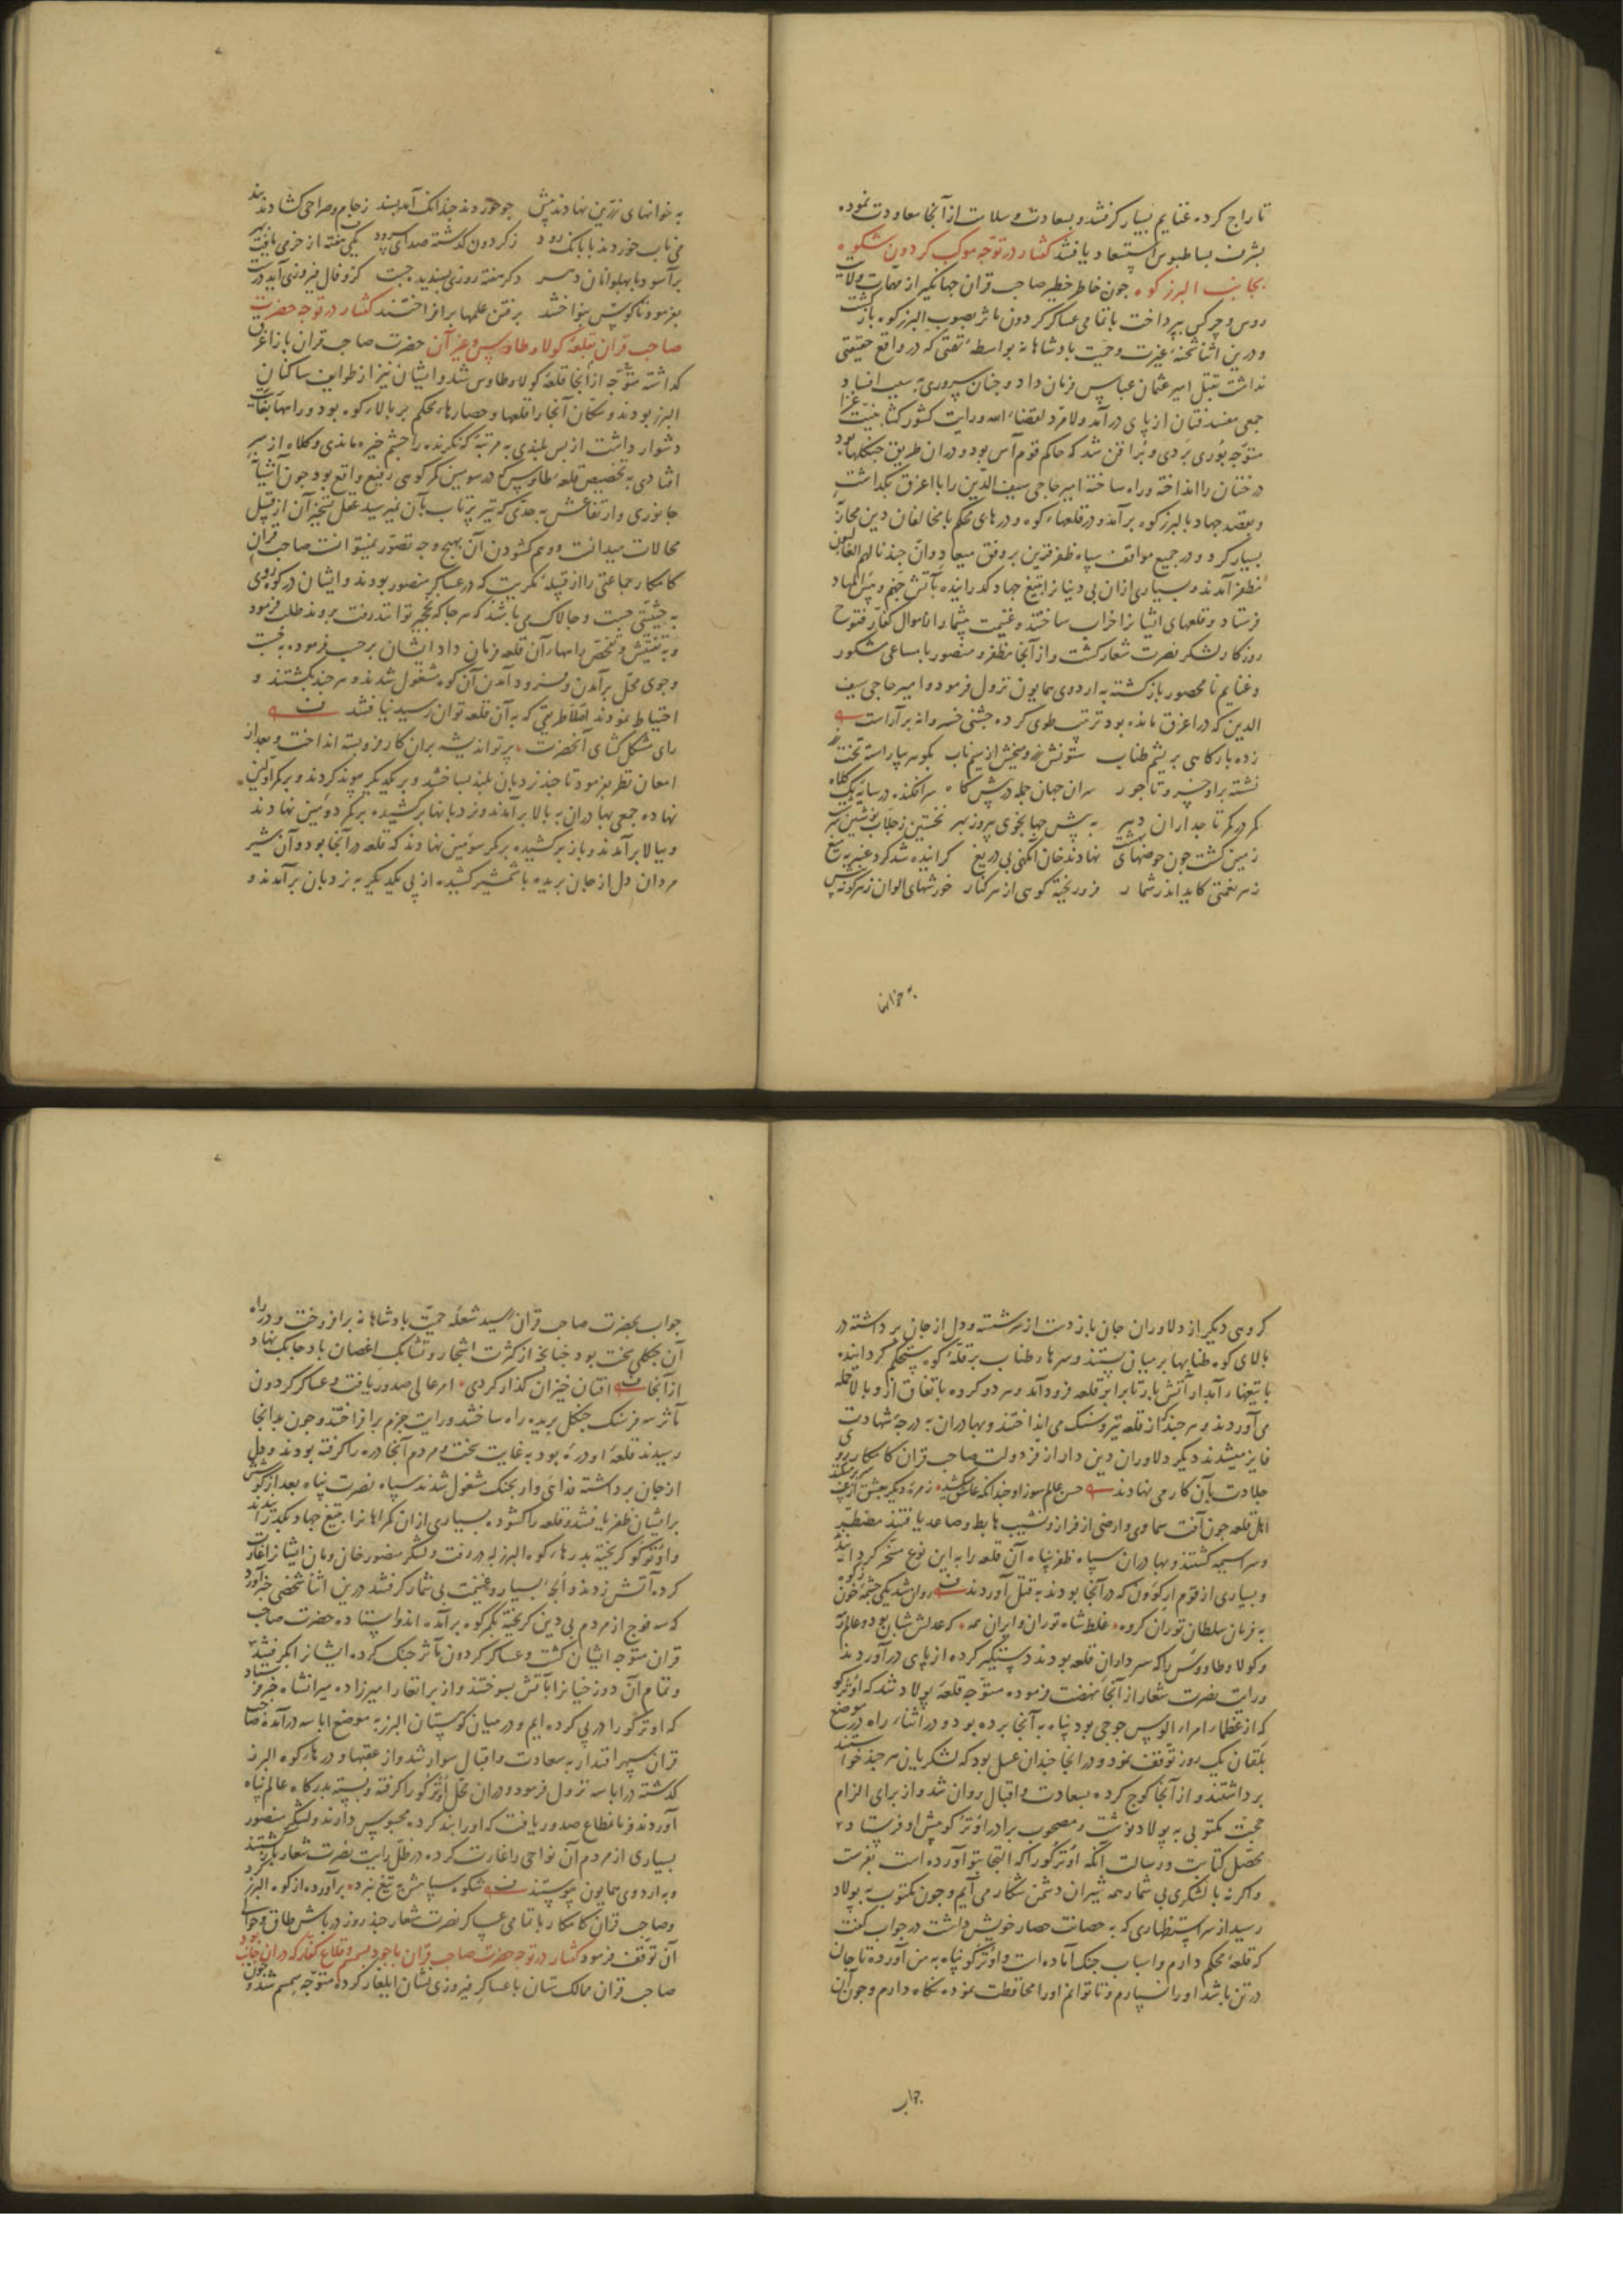 تاراج کرده غنایم بسیار گرفتند و بسعادت و سلامت از آنجا معاودت نموده
بشرف بساطبوس استسعاد یافتند گفتار در توجه موکب گردون شکوه
بجانب البرز کوه جون خاطر خطیر صاحب قران جهانگیر از مهمات ولایت
روس و چرکس بپرداخت با تمامی عساکر گردون ماثر بصوب البرز کوه بازگشت
و درین اثنا شحنه غیرت و حمیت بادشاهانه بواسطه که در واقع حقیقتی
نداشت بقتل امیر عثمان عباس فرمان داد و جنان سروری به سبب افساد
جمعی مفسد فتان از پای درآمد ولا مرد لقضاء الله و رایت کشور کشا بنیت غزا
متوجه بوری بردی و براقن شد که حاکم قوم آس بود و در ان طریق جنکلها بود
درختان را انداخته و راه ساخته امیر حاجی سیف الدین را با اغرق بگذاشت
و بقصد جهاد بالبرز کوه برآمد و در قلعهاء کوه و درهای محکم با مخالفان دین محاربه
بسیار کرد و در جمیع مواقف سپاه ظفر قرین بر وفق میعاد و ان جندنا لهم الغالبون
مظفر آمدند و بسیاری از ان بی دینان را بتیغ جهاد گذرانیده بآتش جهنم و بئس المهاد
فرستاد و قلعهای ایشان را خراب ساختند و غنیمت بیشمار از اموال کفار فتوح
روزکار لشکر نصرت شعار کشت و از آنجا مظفر و منصور با مساعی مشکور
و غنایم نامحصور بازکشته به اردوی همایون نزول فرمود و امیر حاجی سیف
الدین که در اغرق مانده بود ترتیب طوی کرده جشنی خسروانه برآراست
زده بارکاهی بریشم طناب ستونش زر و میخش از سیم ناب بکوهر بیاراسته تخت
نشسته بر او خسرو تاجور سران جهان جمله در پیش کاه سرافکنده در سایه یک کلاه
کمر در کمر تاجداران دهر به پیش جهانجوی پیروز بهر نخستین ز جلاب نوشین
زمین کشت جون حوضهای بهشت نهادند خوان آنکهی بی دریغ کرانیده شد کرد عنبر به میغ
زهر نعمتی کاید اندر شمار فرو ریخته کوهی از هر کنار خورشهای الوان زهر کونه پیش
به خوانها
به خوانهای زرین نهادند پیش جو خوردند جندانک آمد پسند ز جام و صراحی کشادند بند
می ناب خوردند با بانک رود ز کردون کذشته صدای سرود یکی هفته از خرمی یافت بهر
برآسود با پهلوانان دهر دکر هفته روزی پسندیده جست کزو فال فیروزی آید درست
بفرمود تا کوس بنواختند برفتن علمها برافراختند گفتار در توجه حضرت
صاحب قران بقلعه کولا و طاوس و غیر آن حضرت صاحب قران باز اغرق
کذاشته متوجه از آنجا قلعه کولا و طاوس شد و ایشان نیز از طوایف ساکنان
البرز بودند و سکان آنجا را قلعها و حصارهاء محکم بر بالاء کوه بود و راهها بغایت
دشوار داشت از بس بلندی به مرتبه که نکرنده را جشم خیره ماندی و کلاه از سر
افتادی به تخصیص قلعه طاوس که در سومین کمر کوهی رفیع واقع بود جون آشیانه
جانوری و ارتفاعش به حدی که تیر پرتاب بآن نمیرسید عقل تسخیر آن از قبیل
محالات میدانست و وهم کشودن آن بهیچ وجه تصور نمیتوانست صاحب قران
کامکار جماعتی را از قبیله مکریت که در عساکر منصور بودند و ایشان در کوه روی
به حیثیتی جست و جالاک می باشند که هر جا که نخجیر تواند رفت بروند طلب فرمود
و به تفتیش و تفحص راههاء آن قلعه فرمان داد ایشان بر حسب فرموده به جست
و جوی محل برآمدن و فرود آمدن آن کوه مشغول شدند و هر جند بکشتند و
احتیاط نمودند اصلا طریقی که به آن قلعه توان رسید نیافتند
رای مشکل کشای آنحضرت پرتو اندیشه بران کار فروبسته انداخت و بعد از
امعان نظر بفرمود تا جند نردبان بلند بساختند و بر یکدیکر پیوند کردند و بر کمر اولین
نهاده جمعی بهادران به بالا برآمدند و نردبانها برکشیده بر کمر دومین نهادند
و ببالا برآمدند و باز برکشیده بر کمر سومین نهادند که قلعه در آنجا بود و آن شیر
مردان دل از جان بریده با شمشیر کشیده از پی یکدیکر به نردبان برآمدند و
کروهی دیکر از دلاوران جان باز دست از سر شسته و دل از جان برداشته در
بالای کوه طنابها بر میان بستند و سرهاء طناب بر قله کوه مستحکم کردانیده
با تیغهاء آبدار آتش بار تا برابر قلعه فرود آمدند و هر دو کرده باتفاق از زیر و بالا حمله
می آوردند و هر جند از قلعه تیر و سنک می انداختند و بهادران به درجه شهادت
فایز میشدند دیکر دلاوران دین دار از فر دولت صاحب قران کامکار روی
جلادت بآن کار می نهادند حسن عالم سوز او جندانکه عاشق می کشد زمره دیکر بعشق از غیب سر بر میکند
اهل قلعه جون آفت سماوی و ارضی از فراز و نشیب هابط و صاعد یافتند مضطر
و سراسیمه کشتند و بهادران سپاه ظفر پناه آن قلعه را به این نوع مسخر کردانیدند
و بسیاری از قوم ارکوون که در آنجا بودند به قتل آوردند روان شد یکی جشمه خون ز کوه
به فرمان سلطان توران کروه غلط شاه توران و ایران همه که عدلش شبان بود و عالم رمه
و کولا و طاوس را که سرداران قلعه بودند دستکیر کرده از پای درآوردند
و رایت نصرت شعار از آنجا نهضت فرموده متوجه قلعه پولاد شد که اوترکو
که از عظماء امراء الوس جوجی بود پناه به آنجا برده بود و در اثناء راه در موضع
بلقان یک روز توقف نمود و در انجا جندان عسل بود که لشکریان هر جند خواستند
برداشتند و از آنجا کوچ کرده بسعادت و اقبال روان شد و از برای الزام
حجت مکتوبی به پولاد نوشت و مصحوب برادر اوترکو پیش او فرستاد
محصل کتابت و رسالت آنکه اوترکو را که التجا بتو آورده است بفرست
و اکر نه با لشکری بی شمار همه شیران دشمن شکار می آیم و جون مکتوب به پولاد
رسید از سر استظهاری که به حصانت حصار خویش داشت در جواب کفت
که قلعه محکم دارم و اسباب جنک آماده است و اوترکو پناه به من آورده تا جان
در تن باشد او را نسپارم و تا توانم او را محافظت نموده نکاه دارم و جون آن
جواب
جواب بحضرت صاحب قران رسید شعله حمیت بادشاهانه برافروخت و در راه
آن جنکلی سخت بود جنانجه از کثرت اشجار و تشابک اغصان باد جابک نهاد
از آنجا افتان خیزان کذار کردی امر عالی صدور یافت و عساکر کردون
مآثر سه فرسنک جنکل بریده راه ساختند و رایت جزم برافراختند و جون بدانجا
رسیدند قلعه او دره بود به غایت سخت و مردم آنجا دره را کرفته بودند و دل
از جان برداشته فدائی وار بجنک مشغول شدند سپاه نصرت پناه بعد از کوشش
بر ایشان ظفر یافتند و قلعه را کشوده بسیاری از ان کمراهان را بتیغ جهاد بکذرانیدند
و اوترکو کریخته بدرهاء کوه البرز در رفت و لشکر منصور خان و مان ایشان را غارت
کرده آتش زدند و الجه بسیار و غنیمت بی شمار کرفتند درین اثنا شخصی خبر آورد
که سه فوج از مردم بی دین کریخته بکمر کوه برآمده اند و ایستاده حضرت صاحب
قران متوجه ایشان کشت و عساکر کردون مآثر جنک کرده ایشان را بکرفتند
و تمام آن دوزخیان را بآتش بسوختند و از برانغار امیرزاده میرانشاه خبر فرستاد
که اوترکو را در پی کرده ایم و در میان کوهستان البرز به موضع اباسه درآمده صاحب
قران سپهر اقتدار به سعادت و اقبال سوار شد و از عقبها و درهاء کوه البرز
کذشته در اباسه نزول فرمود و دران محل اوترکو را کرفته و بسته بدرکاه عالم پناه
آوردند فرمان مطاع صدور یافت که او را بند کرده محبوس دارند و لشکر منصور
بسیاری از مردم آن نواحی را غارت کرده در ظل رایت نصرت شعار بازکشتند
و به اردوی همایون پیوستند شکوه سپاهش به تیغ نبرد برآورده از کوه البرز کرد
و صاحب قران کامکار با تمامی عساکر نصرت شعار جند روز در باش طاق و حوالی
آن توقف فرمود گفتار در توجه حضرت صاحب قران بجانب سمسم و قلاع کفار که دران جانب بود
صاحب قران ممالک ستان با عساکر فیروزی نشان ایلغار کرده متوجه سمسم شد و جون